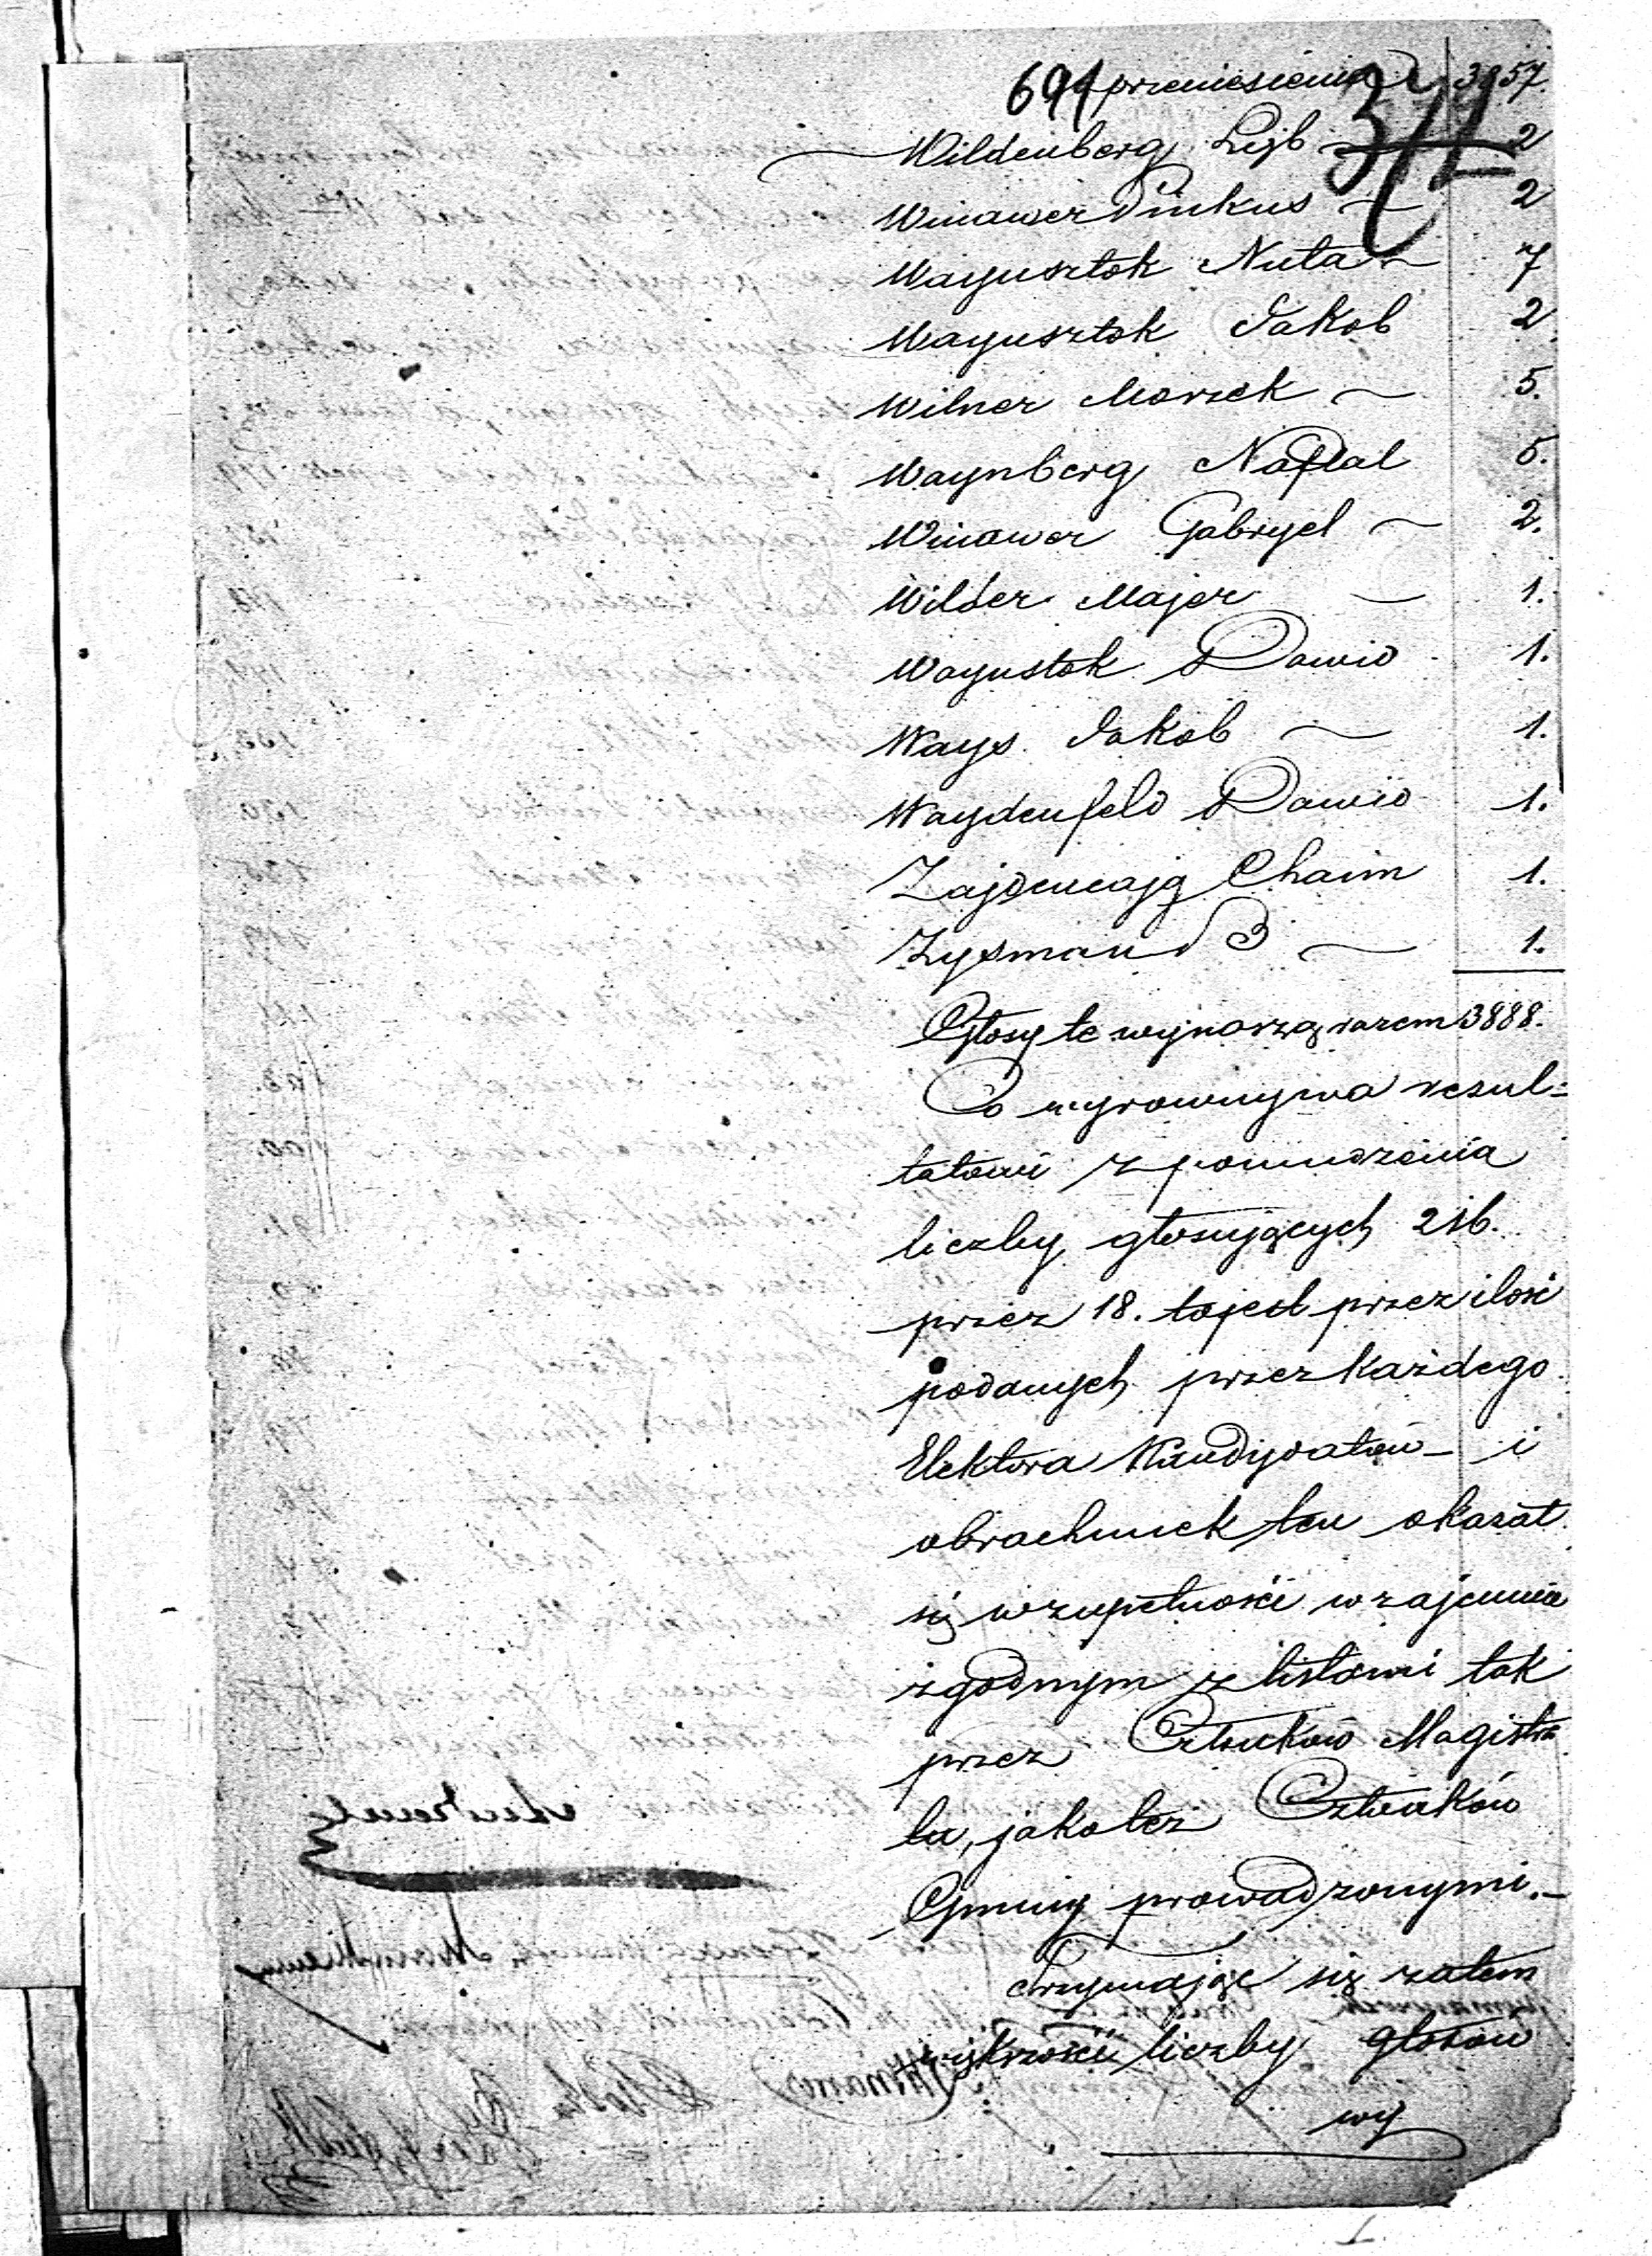 691 przeniesienia 3857.
371
Wildenberg Lejb 2
Winawer Pinkus 2
Wayusztok Nuta 7
Wayusztok Jakob 2
Wilner Morzek 5.
Waynberg Naftal 5.
Winawer Gabryel 2.
Wilder Majer 1.
Wayustok Dawid 1.
Ways Jakob 1.
Waydenfeld Dawid 1.
Zajdencajg Chaim 1.
Zysman 1.
Głosy te wynoszą razem 3888.
Co wyrownywa resul=
tatowi z pomnożenia
liczby głosujących 216.
przez 18. tojest przez ilość
podanych przez każdego
Elektora Kandydatów – i
obrachunek ten okazał
się wzupełności wzajemnie
zgodnym z listami tak
przez Członków Magistra
tu, jakoteż Członków
Gminy prowadzonymi. –
Trzymając się zatem
większości liczby głosów
wy